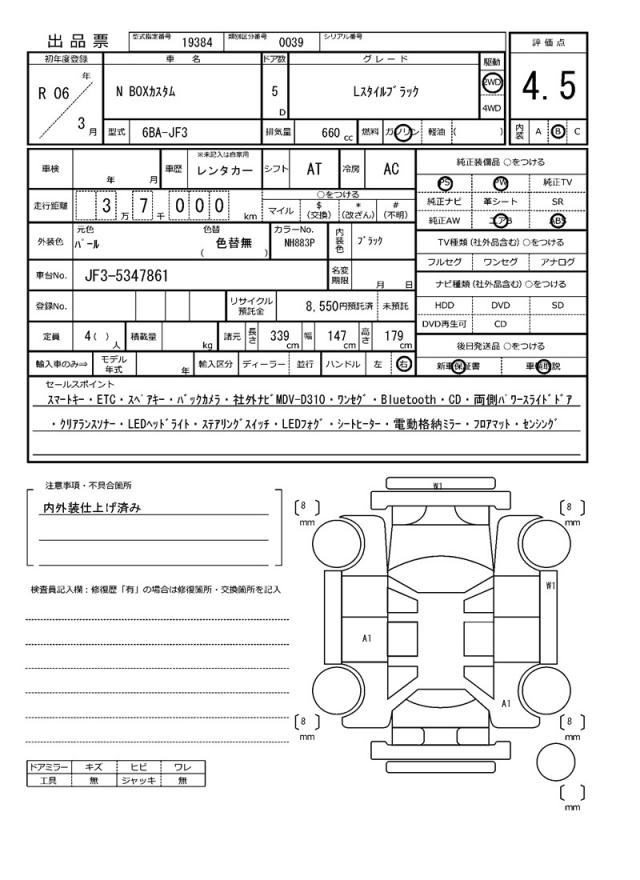 出品票 型式指定番号 19384 類別区分番号 0039 シリアル番号
評価点
4.5
初年度登録 車名 ドア数 グレード 駆動
R 06 年 3 月
N BOXカスタム 5 D Lスタイルブラック 2WD
4WD
型式 6BA-JF3 排気量 660 cc 燃料 ガソリン 軽油 ( )
内装 A B C
車検 年 月 車歴 ※未記入は自家用 レンタカー シフト AT 冷房 AC
走行距離 3 万 7 千 0 0 0 km
○をつける
マイル $(交換) *(改ざん) #(不明)
外装色 元色 パール 色替 色替無 ( ) カラーNo. NH883P 内装色 ブラック
車台No. JF3-5347861 名変期限 月 日
登録No. リサイクル預託金 8,550円預託済 未預託
定員 4( ) 人 積載量 kg 諸元 長さ 339 cm 幅 147 cm 高さ 179 cm
輸入車のみ⇒ モデル年式 年 輸入区分 ディーラー 並行 ハンドル 左 右
純正装備品 ○をつける
PS PW 純正TV
純正ナビ 革シート SR
純正AW エアB ABS
TV種類 (社外品含む) ○をつける
フルセグ ワンセグ アナログ
ナビ種類 (社外品含む) ○をつける
HDD DVD SD
DVD再生可 CD
後日発送品 ○をつける
新車保証書 車輌取説
セールスポイント
スマートキー・ETC・スペアキー・バックカメラ・社外ナビMDV-D310・ワンセグ・Bluetooth・CD・両側パワースライドドア
・クリアランスソナー・LEDヘッドライト・ステアリングスイッチ・LEDフォグ・シートヒーター・電動格納ミラー・フロアマット・センシング
注意事項・不具合箇所
内外装仕上げ済み
検査員記入欄：修復歴「有」の場合は修復箇所・交換箇所を記入
ドアミラー キズ ヒビ ワレ
工具 無 ジャッキ 無
W1
[ 8 ] mm
[ 8 ] mm
W1
A1
A1
[ 8 ] mm
[ 8 ] mm
[ ] mm